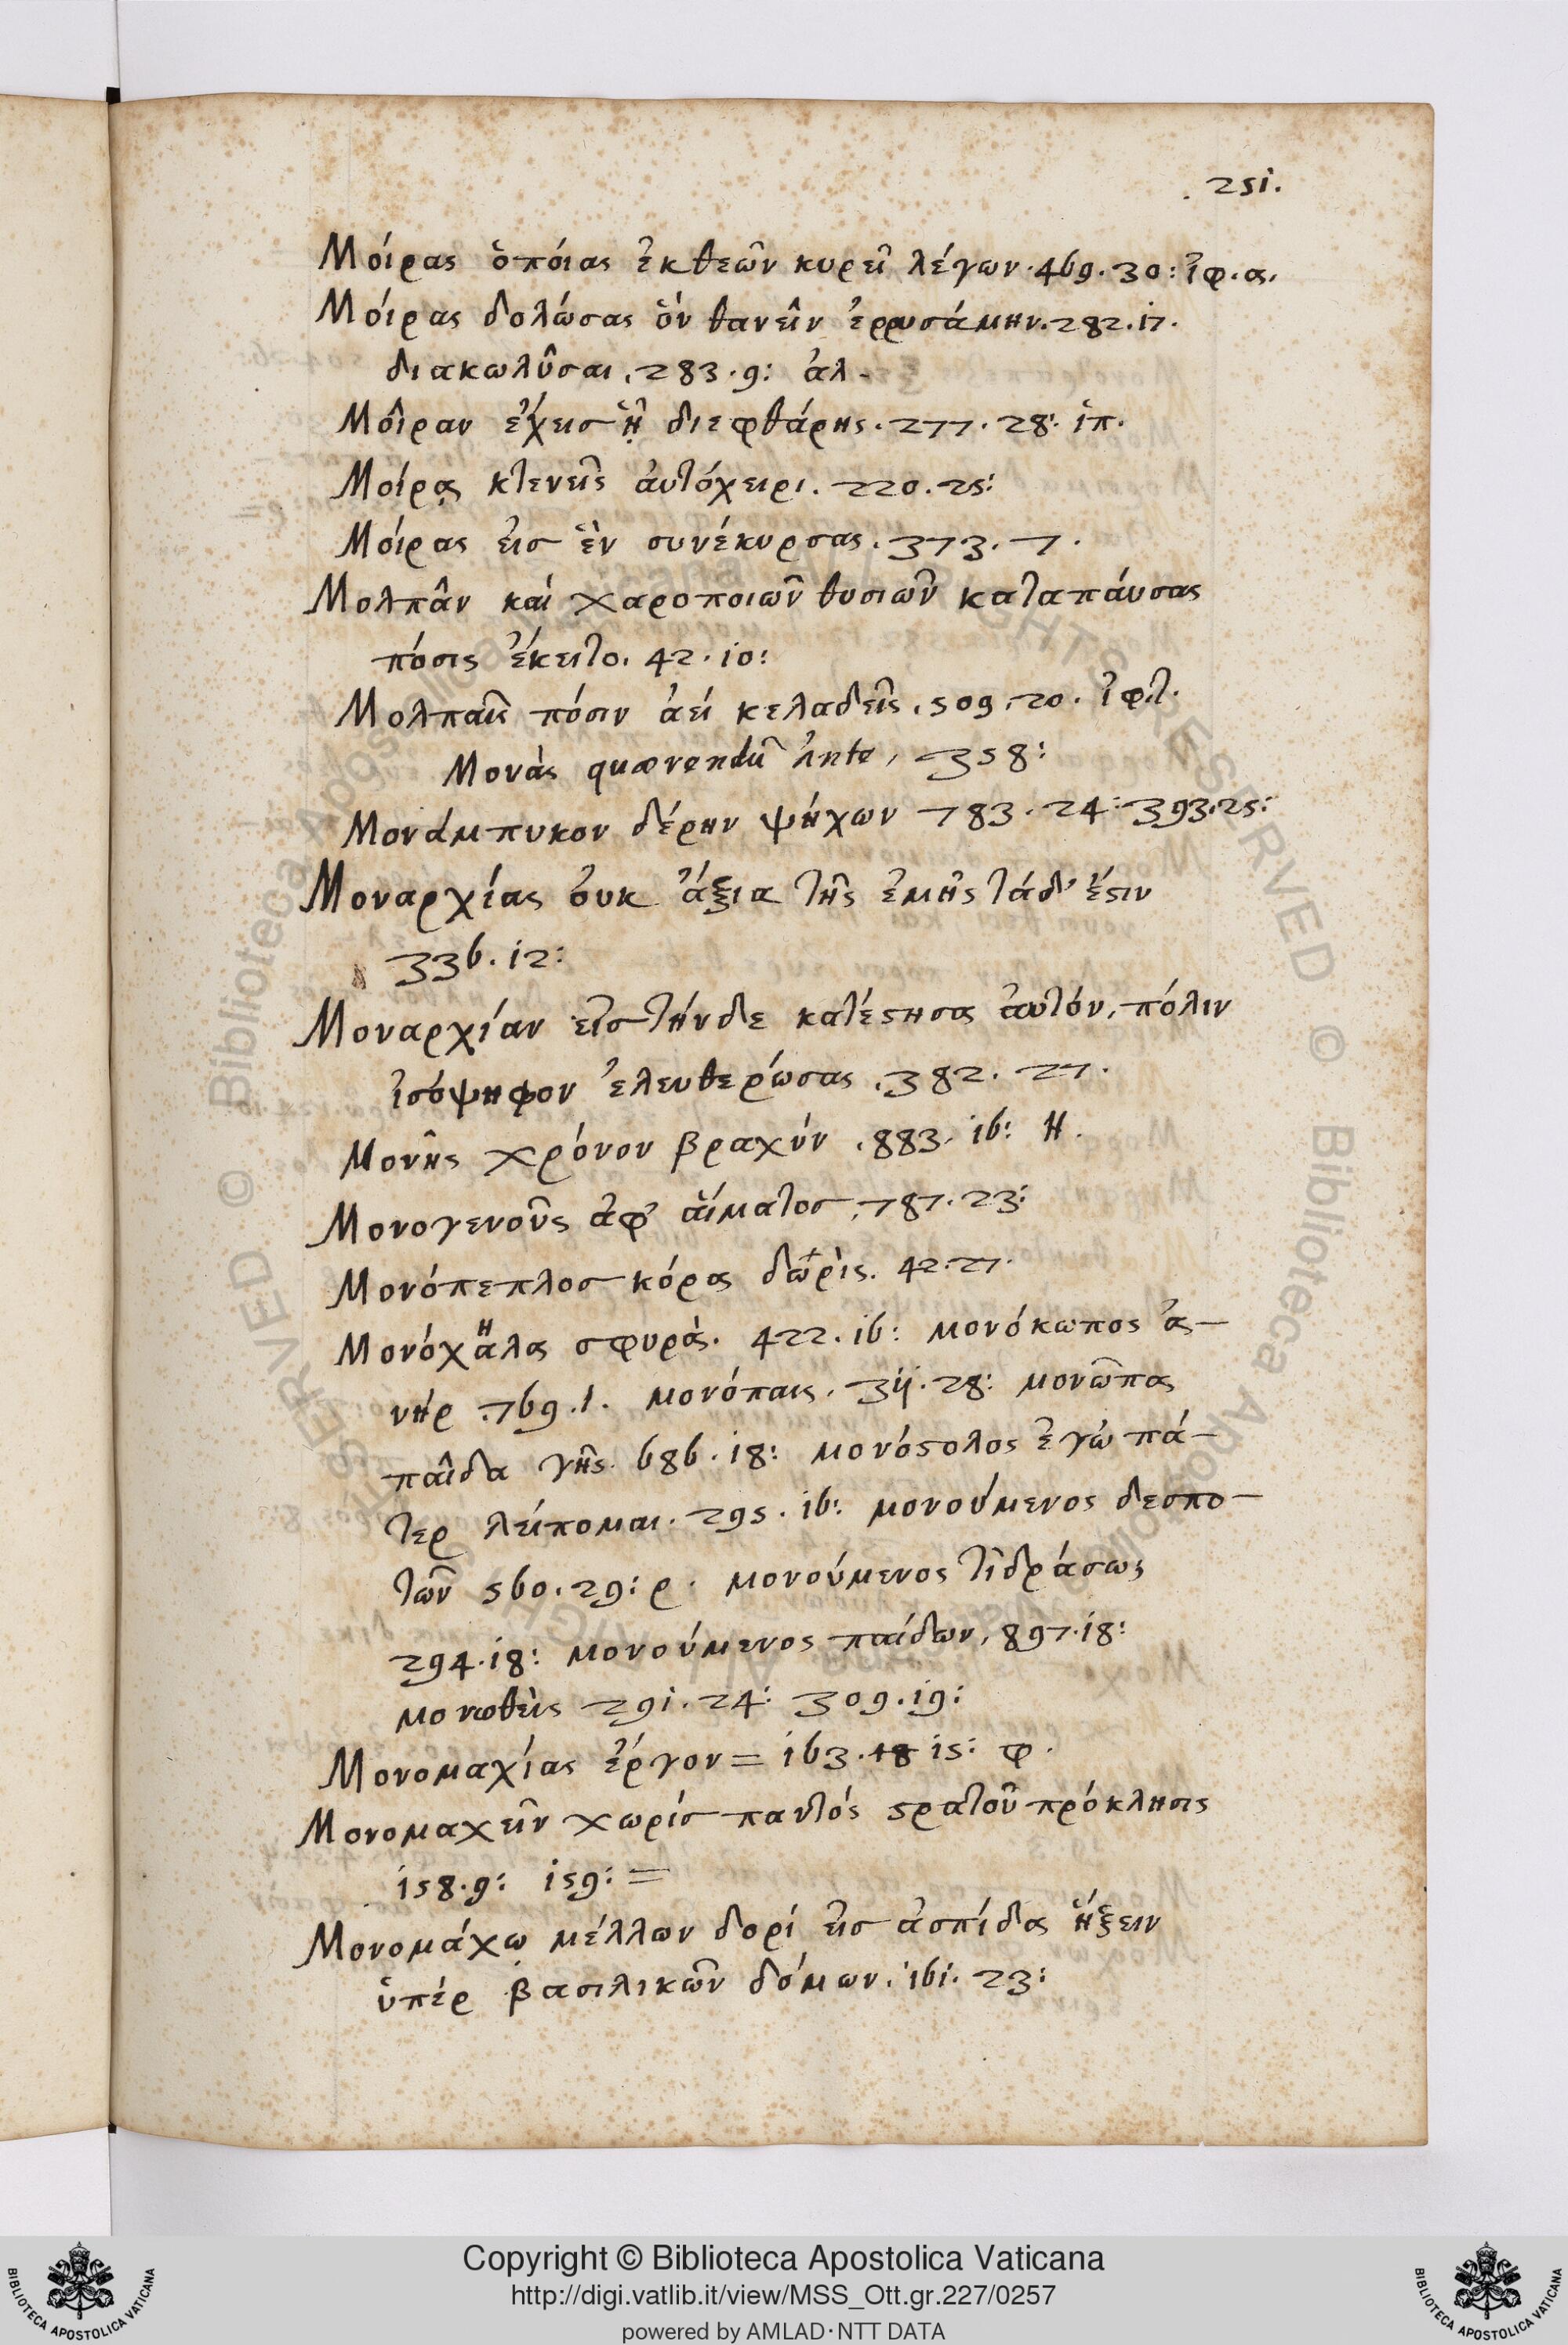 251.
Μοίρας ὁπόιας ἐκ θεῶν κυρεῖ λέγων. 469. 30: ἰφ. α.
Μόιρας δολώσας ὅν θανεῖν ἐρρυσάμην. 282. 17.
διακωλῦσαι. 283. 9: ἀλ.
Μοῖραν ἔχεισ ᾗ διεφθάρης. 277. 28: ἱπ.
Μοίρᾳς κτενεῖς ἀυτόχειρι. 220. 25:
Μόιρας ἐισ ἓν συνέκυρσας. 373. 7.
Μολπᾶν καί χαροποιῶν θυσιῶν καταπάυσας
πόσις ἔκειτο. 42. 10:
Μολπαῖς πόσιν ἀεί κελαδεῖς. 509. 20. ἰφ. τ.
Μονὰς quærendũ Ante, 358:
Μονάμπυκον δέρην ψήχων 783. 24: 393. 25:
Μοναρχίας ὀυκ ἄξια τῆς ἐμῆς τάδ' ἔϛιν
336. 12:
Μοναρχίαν εἰσ τήνδε κατέϛησα ἀυτόν, πόλιν
ἰσόψηφον ἐλευθερώσας. 382. 27.
Μονῆς χρόνον βραχύν. 883. 16: Η.
Μονογενοῦς ἀφ' ἅιματοσ, 787. 23:
Μονόπεπλοσ κόρα δωρὶς. 42. 27.
Μονόχαηλα σφυρὰ. 422. 16: μονόκωπος ἀ-
νήρ. 769. 1. μονόπαις. 311. 28: μονῶπα
παῖδα γῆς. 686. 18: μονόϛολος ἐγὼ πά-
τερ λείπομαι. 295. 16: μονούμενος δεσπο-
τῶν 560. 29: ρ. μονούμενος τί δράσω;
294. 18: μονούμενος παίδων, 897. 18:
μονωθεὶς 291. 24: 309. 19:
Μονομαχίας ἔργον = 163. 18 15: φ.
Μονομαχεῖν χωρίσ παντός ϛρατοῦ πρόκλησις
158. 9: 159: =
Μονομάχῳ μέλλων δορί ἐισ ἀσπίδα ἥξειν
ὑπέρ βασιλικῶν δόμων. 161. 23:
Copyright © Biblioteca Apostolica Vaticana
http://digi.vatlib.it/view/MSS_Ott.gr.227/0257
powered by AMLAD·NTT DATA